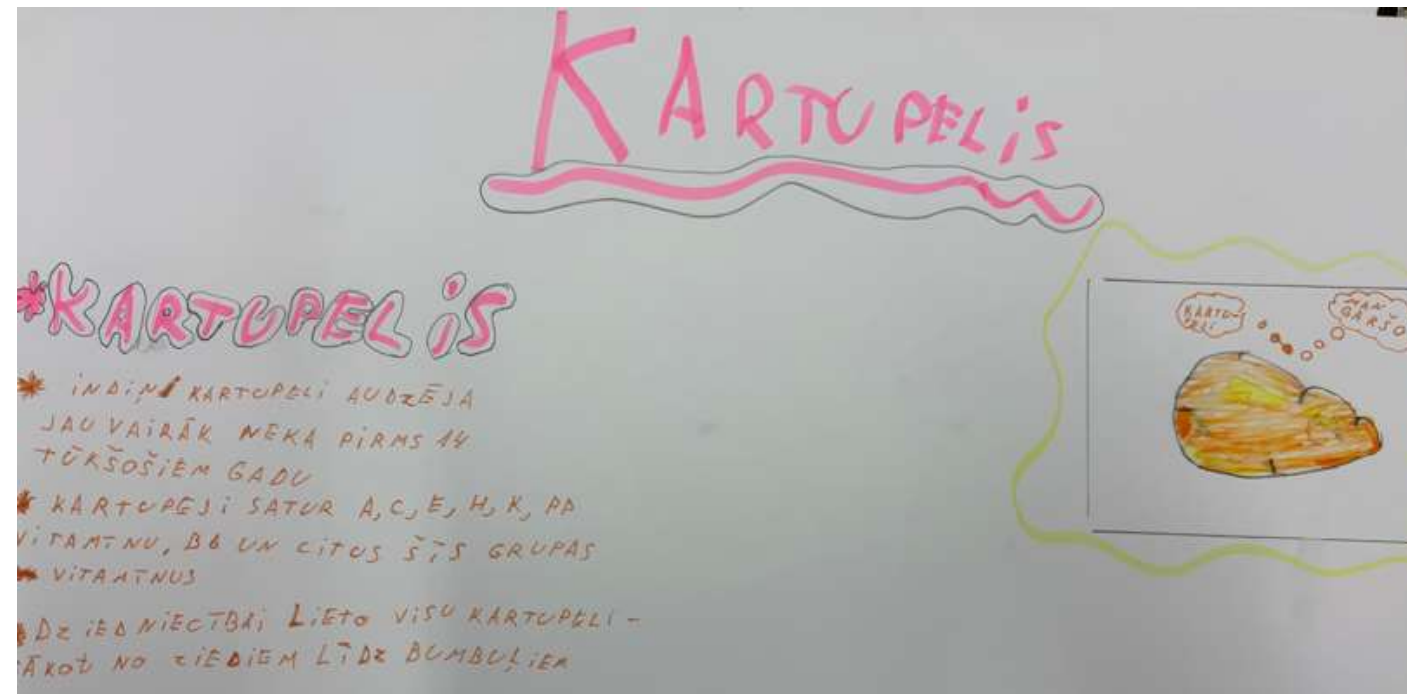 KARTUPELIS
*KARTUPELIS
* INDIĀŅI KARTUPELI AUDZĒJA
JAU VAIRĀK NEKĀ PIRMS 14
TŪKSTOŠIEM GADU
* KARTUPEĻI SATUR A, C, E, H, K, PP
VITAMĪNU, B6 UN CITUS ŠĪS GRUPAS
* VITAMĪNUS
* DZIEDNIECĪBĀI LIETO VISU KARTUPELI -
SĀKOT NO ZIEDIEM LĪDZ BUMBUĻIEM
KARTU-
PELI
MAN
GARŠO